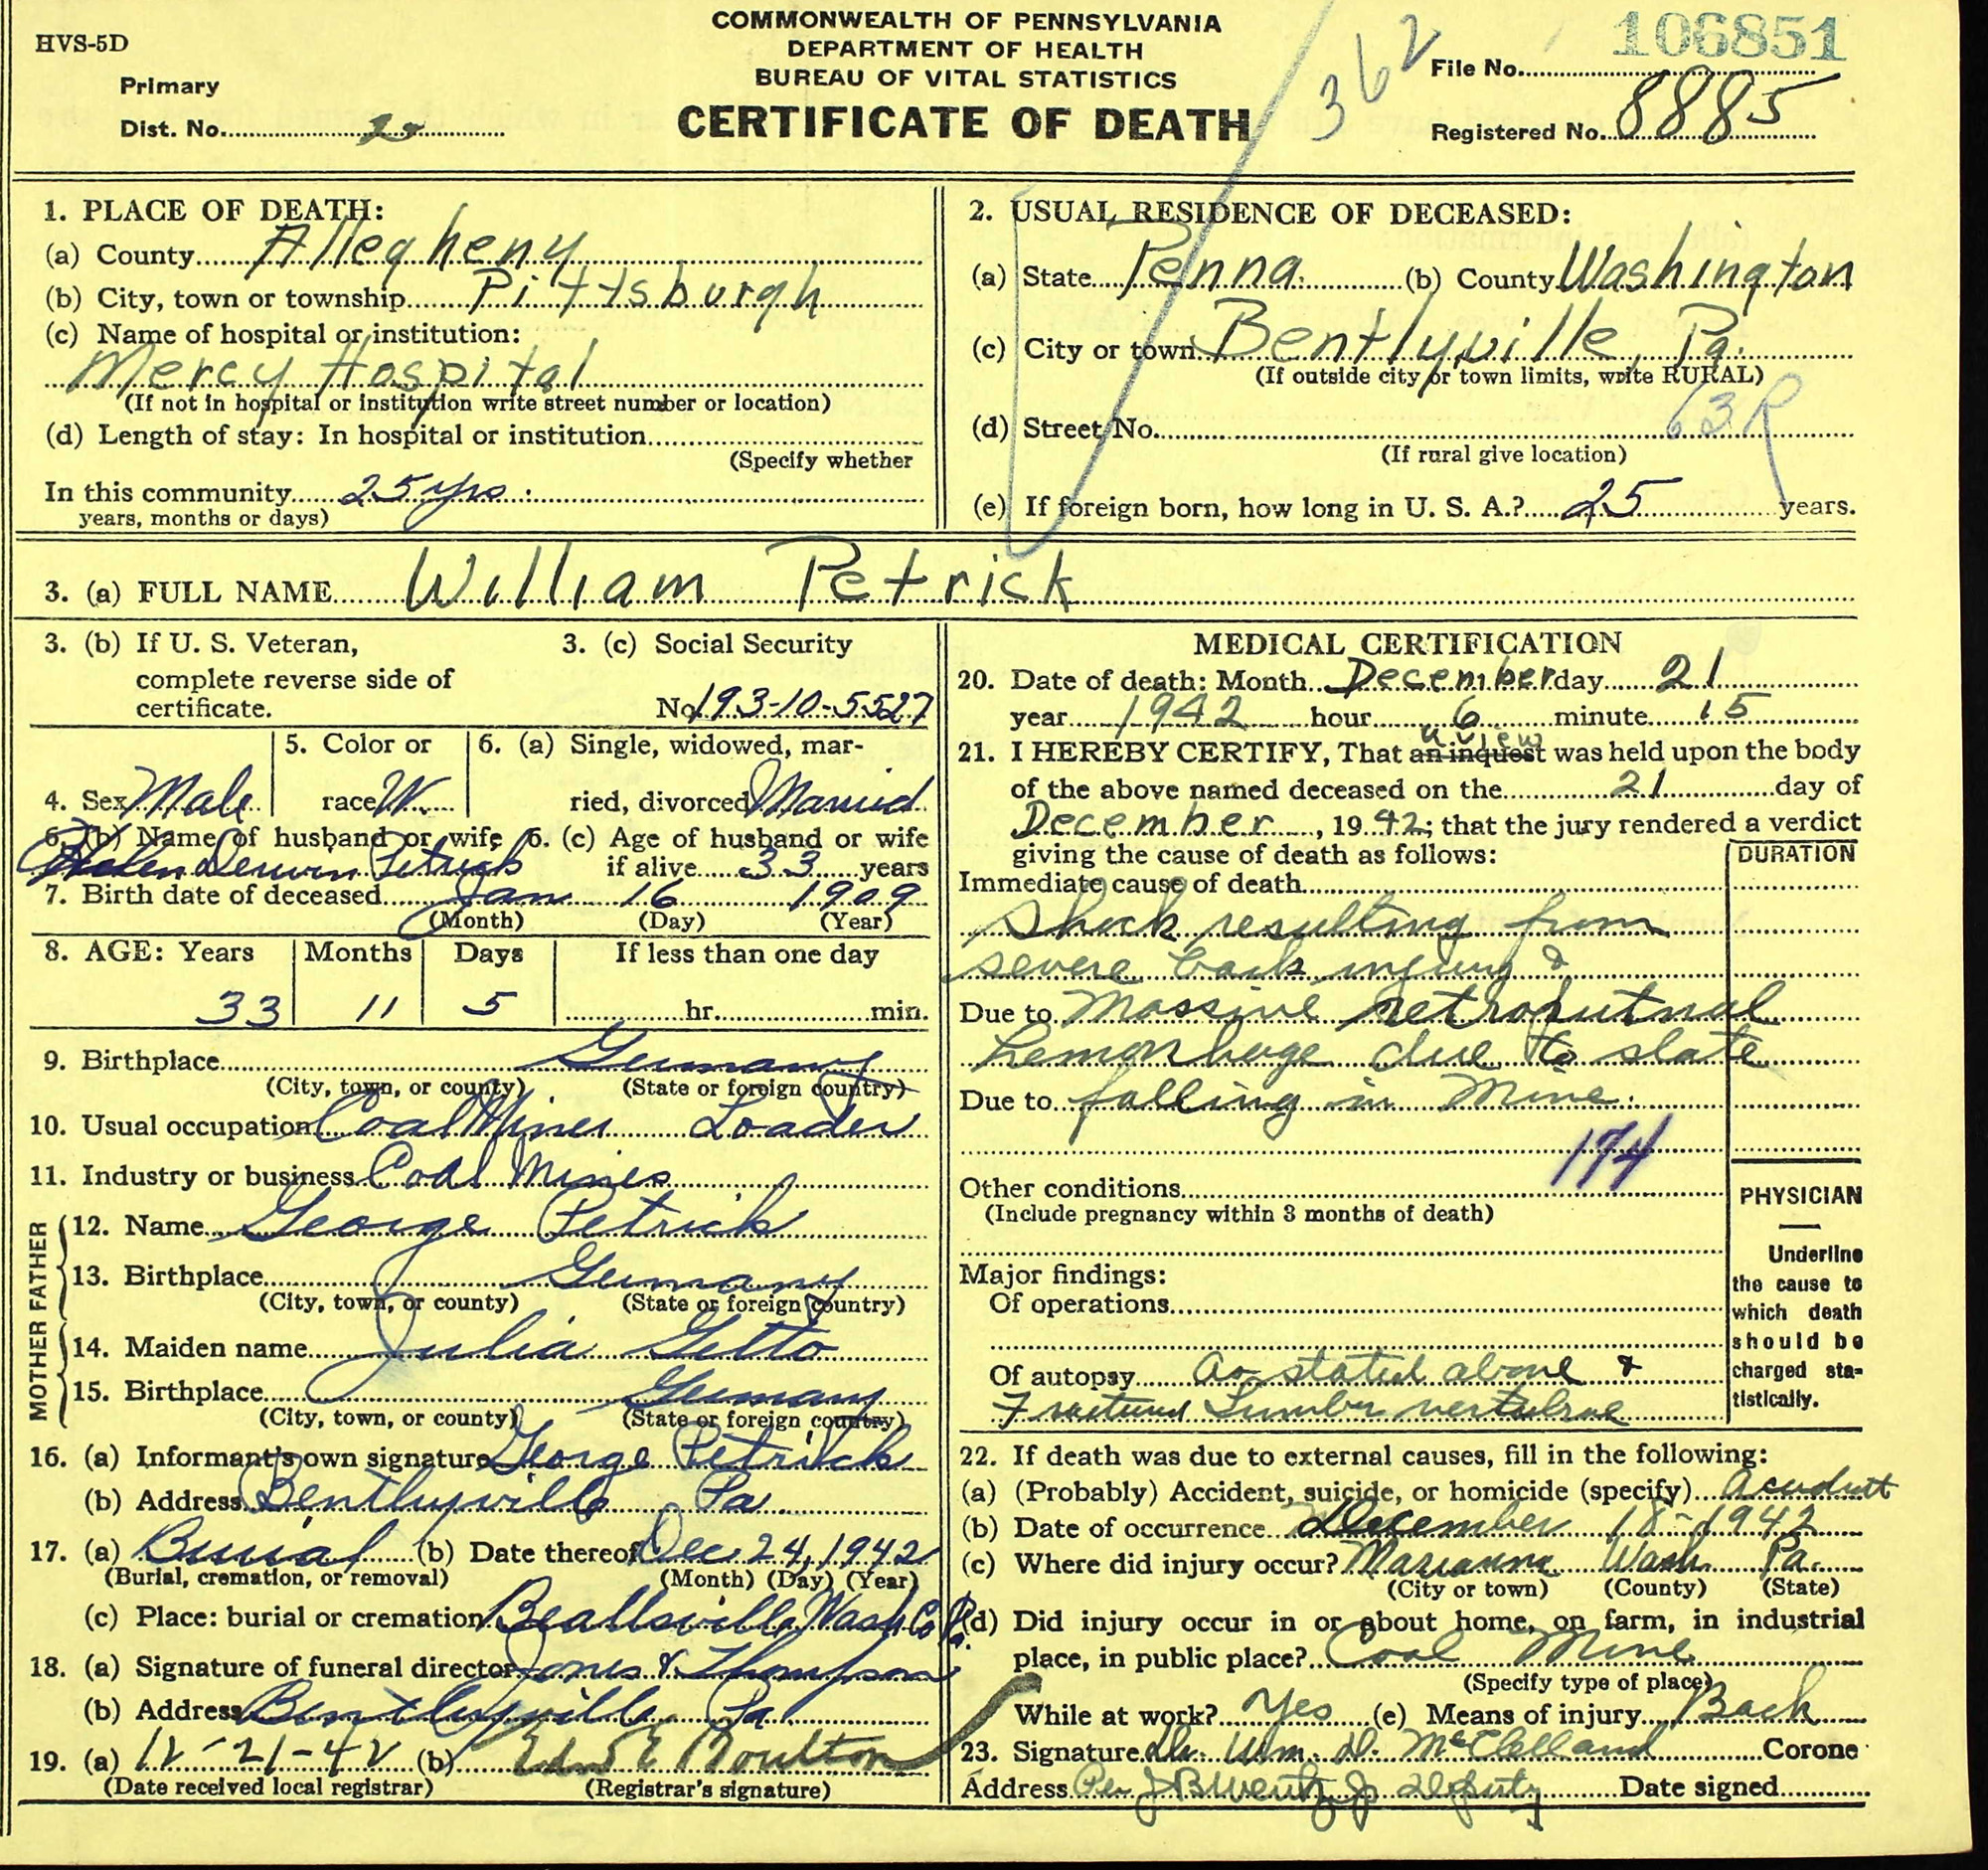 HVS-5D
COMMONWEALTH OF PENNSYLVANIA
DEPARTMENT OF HEALTH
BUREAU OF VITAL STATISTICS
CERTIFICATE OF DEATH
362
106851
File No.
Registered No. 8885
Primary
Dist. No.
1. PLACE OF DEATH:
(a) County Allegheny
(b) City, town or township Pittsburgh
(c) Name of hospital or institution:
Mercy Hospital
(If not in hospital or institution write street number or location)
(d) Length of stay: In hospital or institution
(Specify whether
In this community 25 yrs.
years, months or days)
2. USUAL RESIDENCE OF DECEASED:
(a) State Penna. (b) County Washington
(c) City or town Bentlyville, Pa.
(If outside city or town limits, write RURAL)
63R
(d) Street No.
(If rural give location)
(e) If foreign born, how long in U. S. A.? 25 years.
3. (a) FULL NAME William Petrick
3. (b) If U. S. Veteran,
complete reverse side of
certificate.
3. (c) Social Security
No. 193-10-5527
4. Sex Male
5. Color or
race W.
6. (a) Single, widowed, mar-
ried, divorced Married
6. (b) Name of husband or wife
Helen Petrick
6. (c) Age of husband or wife
if alive 33 years
7. Birth date of deceased Jan 16 1909
(Month) (Day) (Year)
8. AGE: Years Months Days If less than one day
33 11 5 hr. min.
9. Birthplace Germany
(City, town, or county) (State or foreign country)
10. Usual occupation Coal Miner Loader
11. Industry or business Coal Mines
FATHER
12. Name George Petrick
13. Birthplace Germany
(City, town, or county) (State or foreign country)
MOTHER
14. Maiden name Julia Getto
15. Birthplace Germany
(City, town, or county) (State or foreign country)
16. (a) Informant's own signature George Petrick
(b) Address Bentleyville Pa
17. (a) Burial (b) Date thereof Dec 24, 1942
(Burial, cremation, or removal) (Month) (Day) (Year)
(c) Place: burial or cremation Beallsville, Wash Co Pa.
18. (a) Signature of funeral director Jones & Thompson
(b) Address Bentleyville Pa.
19. (a) 12-21-42 (b) Edw E Moulton
(Date received local registrar) (Registrar's signature)
MEDICAL CERTIFICATION
20. Date of death: Month December day 21
year 1942 hour 6 minute 15
a view
21. I HEREBY CERTIFY, That an inquest was held upon the body
of the above named deceased on the 21 day of
December, 1942; that the jury rendered a verdict
giving the cause of death as follows:
DURATION
Immediate cause of death
Shock resulting from
severe back injury &
Due to Massive
hemorrhage due to slate
Due to falling in Mine.
174
Other conditions
(Include pregnancy within 3 months of death)
Major findings:
Of operations
Of autopsy As stated above &
Fractured Lumbar vertebrae
PHYSICIAN
Underline
the cause to
which death
should be
charged sta-
tistically.
22. If death was due to external causes, fill in the following:
(a) (Probably) Accident, suicide, or homicide (specify) Accident
(b) Date of occurrence December 18-1942
(c) Where did injury occur? Marianna Wash. Pa.
(City or town) (County) (State)
(d) Did injury occur in or about home, on farm, in industrial
place, in public place? Coal Mine
(Specify type of place)
While at work? Yes (e) Means of injury Back
23. Signature Dr. Wm. D. McClelland Corone
Address Per Deputy Date signed